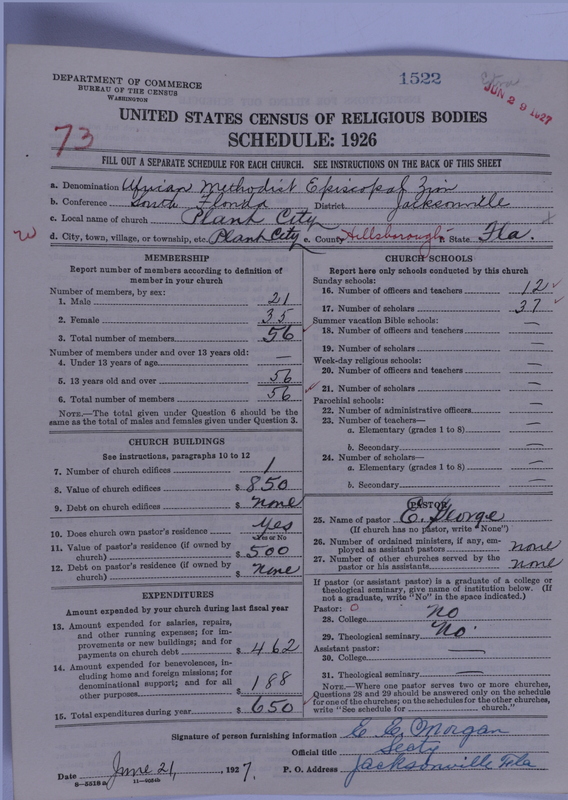 1522
JUN 29 1927
DEPARTMENT OF COMMERCE
BUREAU OF THE CENSUS
WASHINGTON
73
UNITED STATES CENSUS OF RELIGIOUS BODIES
SCHEDULE: 1926
FILL OUT A SEPARATE SCHEDULE FOR EACH CHURCH. SEE INSTRUCTIONS ON THE BACK OF THIS SHEET
a. Denomination African Methodist Episcopal Zion
b. Conference South Florida District Jacksonville
c. Local name of church Plant City
d. City, town, village, or township, etc. Plant City e. County Hillsborough f. State Fla.
MEMBERSHIP
Report number of members according to definition of
member in your church
Number of members, by sex:
1. Male 21
2. Female 35
3. Total number of members 56
Number of members under and over 13 years old:
4. Under 13 years of age —
5. 13 years old and over 56
6. Total number of members 56
NOTE.—The total given under Question 6 should be the
same as the total of males and females given under Question 3.
CHURCH BUILDINGS
See instructions, paragraphs 10 to 12
7. Number of church edifices 1
8. Value of church edifices $ 850
9. Debt on church edifices $ none
10. Does church own pastor's residence Yes
Yes or No
11. Value of pastor's residence (if owned by
church) $ 500
12. Debt on pastor's residence (if owned by
church) $ none
EXPENDITURES
Amount expended by your church during last fiscal year
13. Amount expended for salaries, repairs,
and other running expenses; for im-
provements or new buildings; and for
payments on church debt $ 462
14. Amount expended for benevolences, in-
cluding home and foreign missions; for
denominational support; and for all
other purposes $ 188
15. Total expenditures during year $ 650
CHURCH SCHOOLS
Report here only schools conducted by this church
Sunday schools:
16. Number of officers and teachers 12
17. Number of scholars 37
Summer vacation Bible schools:
18. Number of officers and teachers —
19. Number of scholars —
Week-day religious schools:
20. Number of officers and teachers —
21. Number of scholars —
Parochial schools:
22. Number of administrative officers —
23. Number of teachers—
a. Elementary (grades 1 to 8) —
b. Secondary —
24. Number of scholars—
a. Elementary (grades 1 to 8) —
b. Secondary —
PASTOR
25. Name of pastor E. George
(If church has no pastor, write "None")
26. Number of ordained ministers, if any, em-
ployed as assistant pastors none
27. Number of other churches served by the
pastor or his assistants none
If pastor (or assistant pastor) is a graduate of a college or
theological seminary, give name of institution below. (If
not a graduate, write "No" in the space indicated.)
Pastor: 0
28. College No
29. Theological seminary No
Assistant pastor:
30. College —
31. Theological seminary —
NOTE.—Where one pastor serves two or more churches,
Questions 28 and 29 should be answered only on the schedule
for one of the churches; on the schedules for the other churches,
write "See schedule for church."
Signature of person furnishing information E. E. Morgan
Official title Secty
Date June 21, 1927. P. O. Address Jacksonville Fla
8—5318a 11—9024b